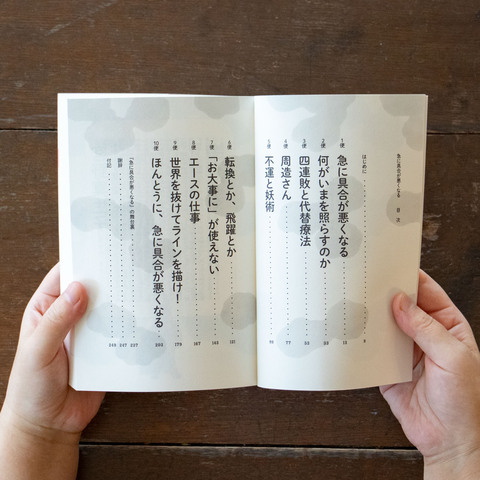 急に具合が悪くなる 目次
はじめに
1便 急に具合が悪くなる
2便 何がいまを照らすのか
3便 四連敗と代替療法
4便 周造さん 77
5便 不運と妖術
6便 転換とか、飛躍とか
7便 「お大事に」が使えない
8便 エースの仕事 167
9便 世界を抜けてラインを描け! 179
10便 ほんとうに、急に具合が悪くなる
『急に具合が悪くなる』の舞台裏 237
謝辞
付記